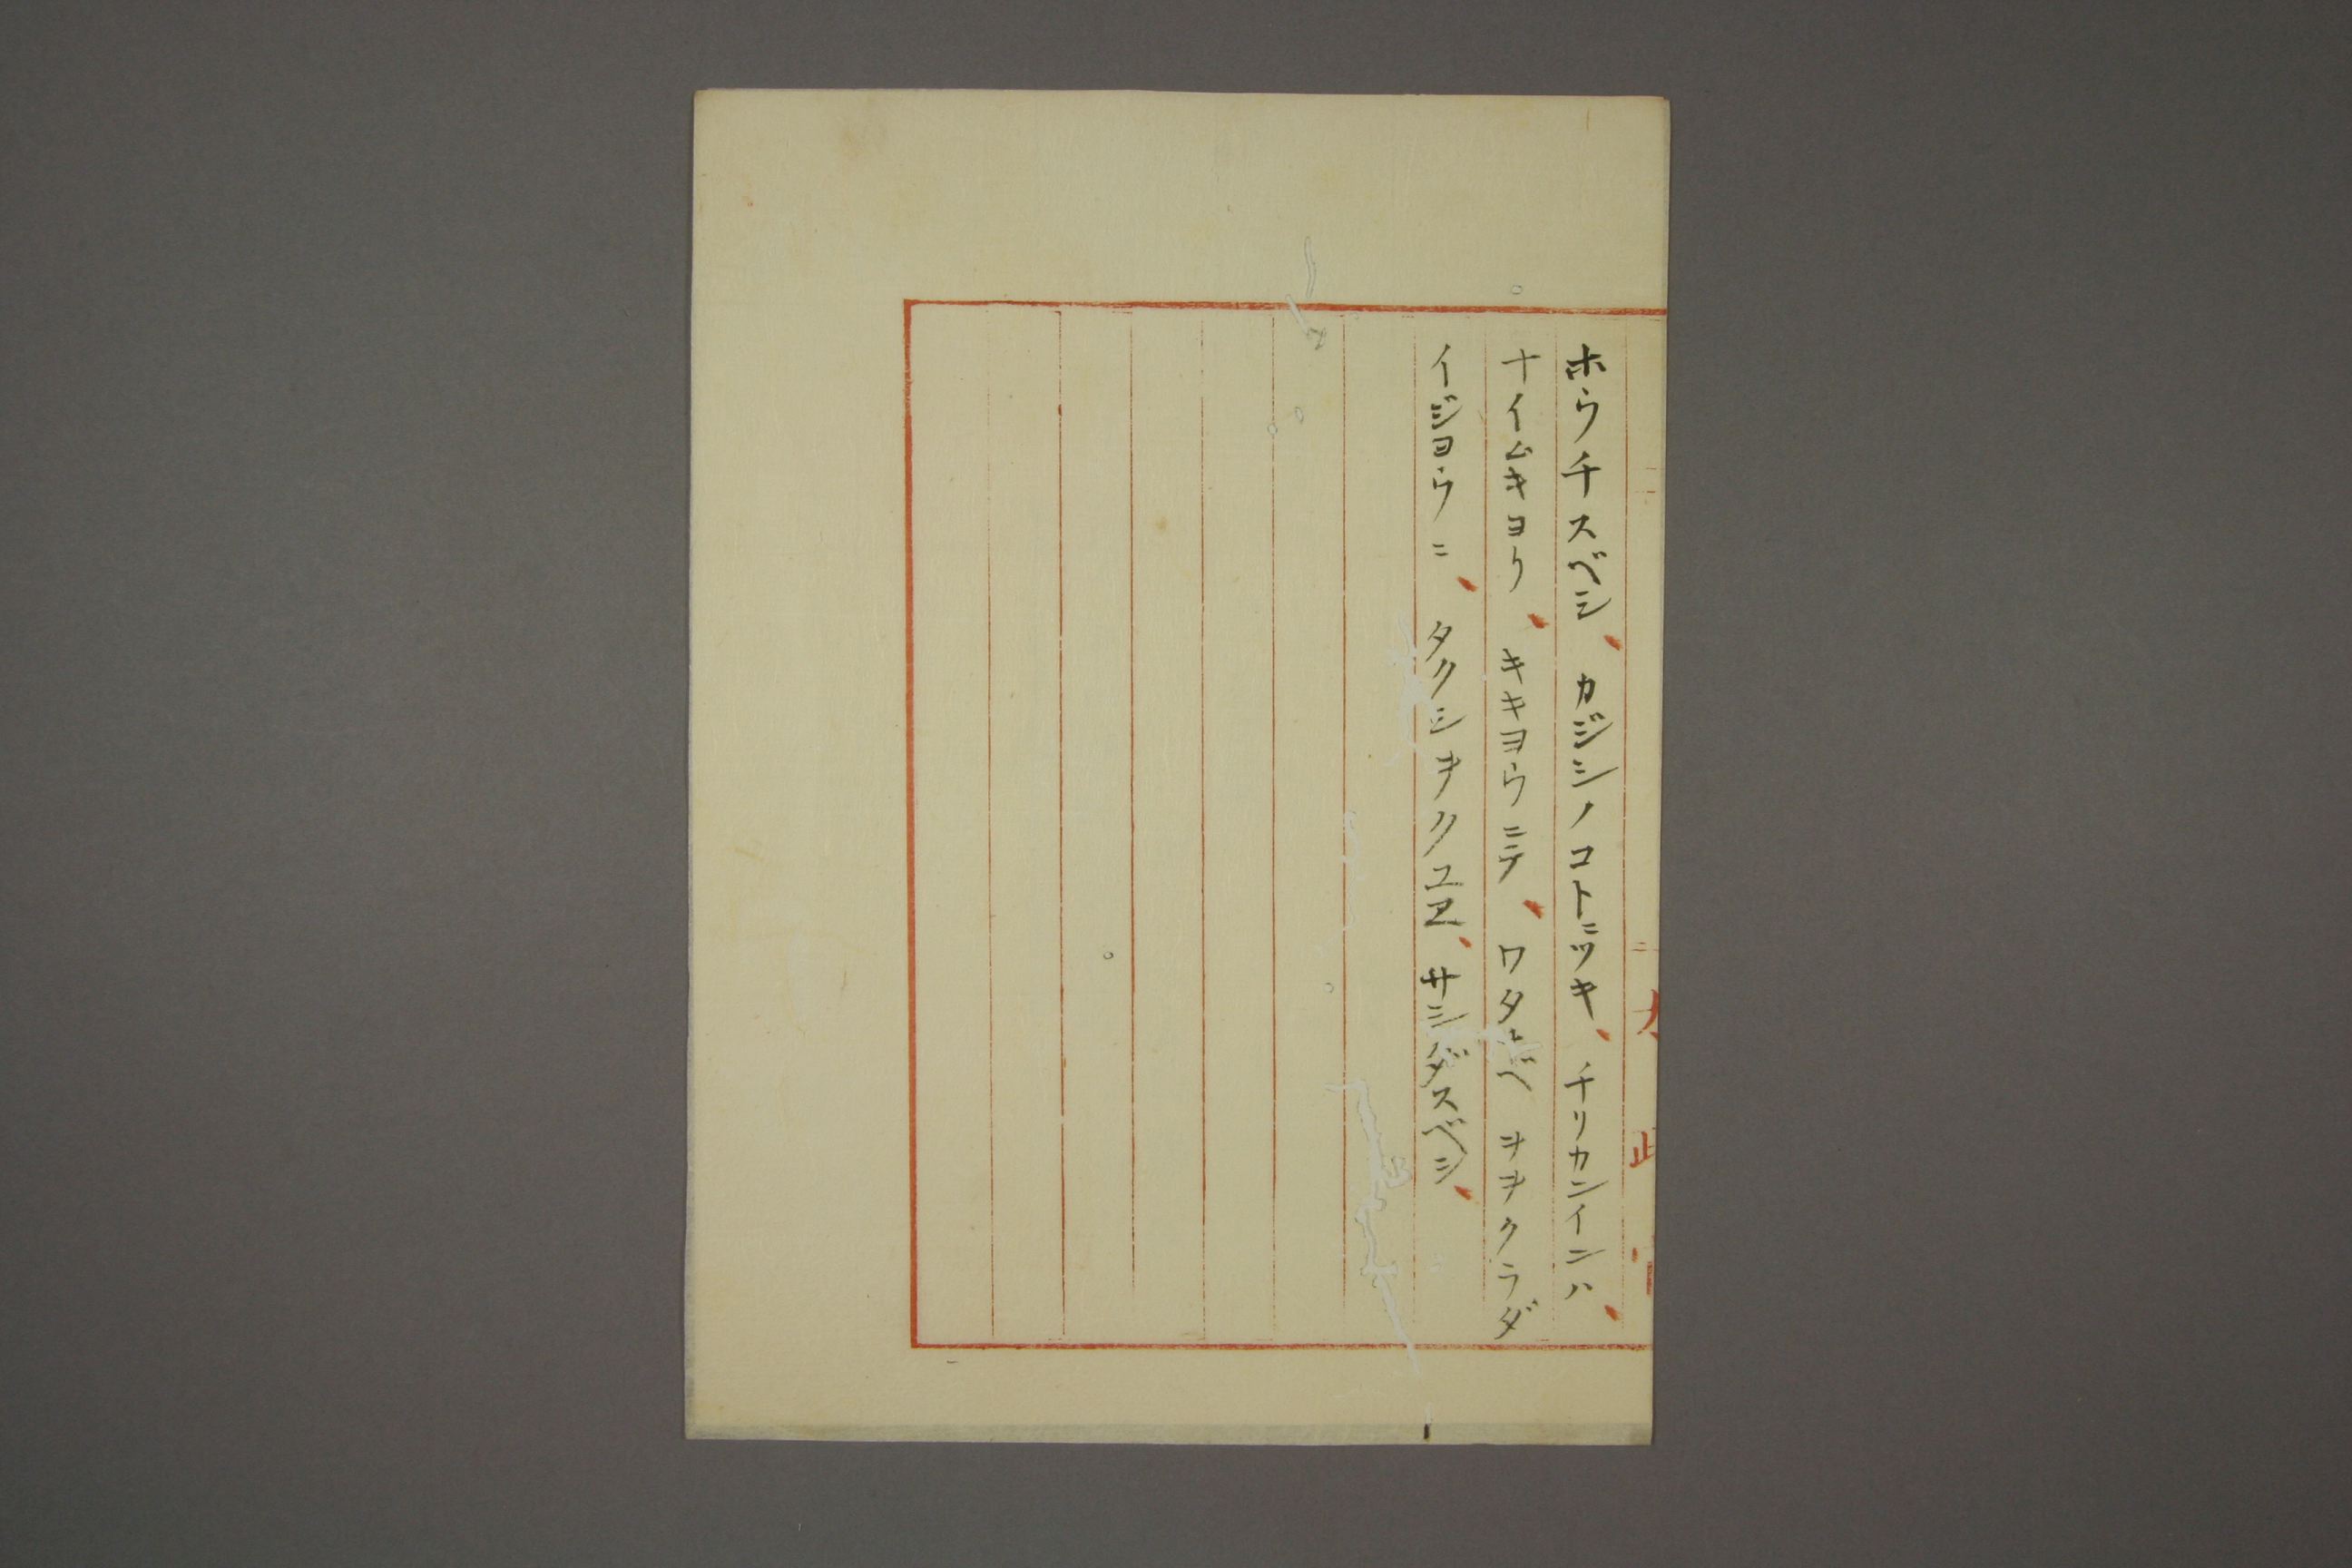 ホウチスベシ、カジシノコトニツキ、チリカンインハ、
ナイムキヨリ、キキヨウニテ、ワタナベ オオクラダ
イジヨウニ、タクシオクユヱ、サシダスベシ、